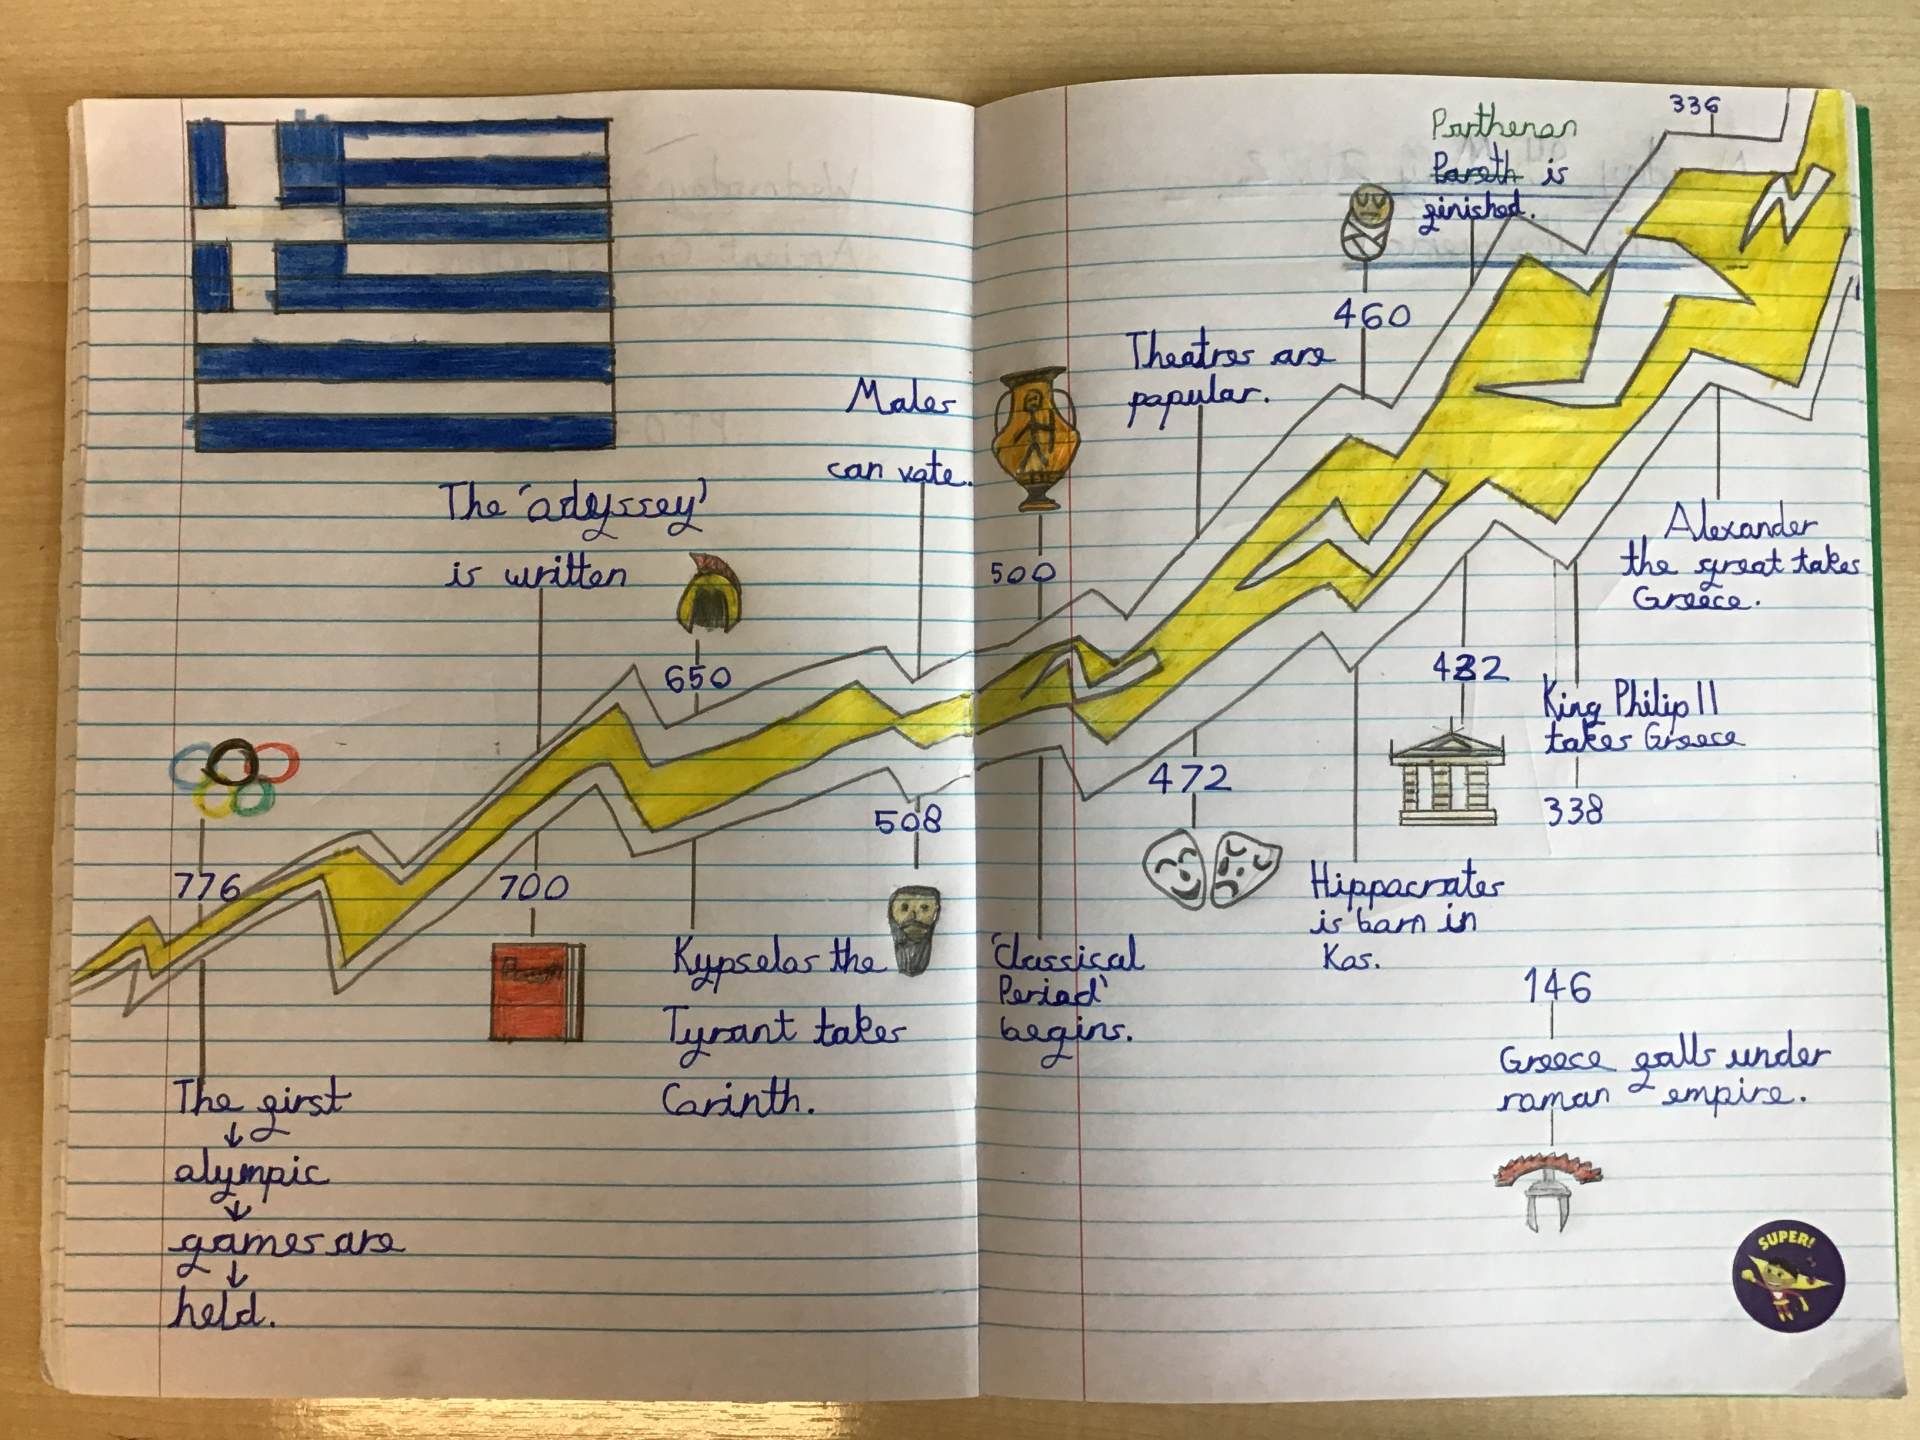 The 'odyssey'
is written
Males
can vote.
650
776
700
508
The first
olympic
games are
held.
Kypselos the
Tyrant takes
Corinth.
500
Theatres are
popular.
460
Parthenon
Pareth is
finished.
336
Alexander
the great takes
Greece.
472
432
King Philip II
takes Greece
338
'Classical
Period'
begins.
Hippocrates
is born in
Kos.
146
Greece falls under
roman empire.
SUPER!